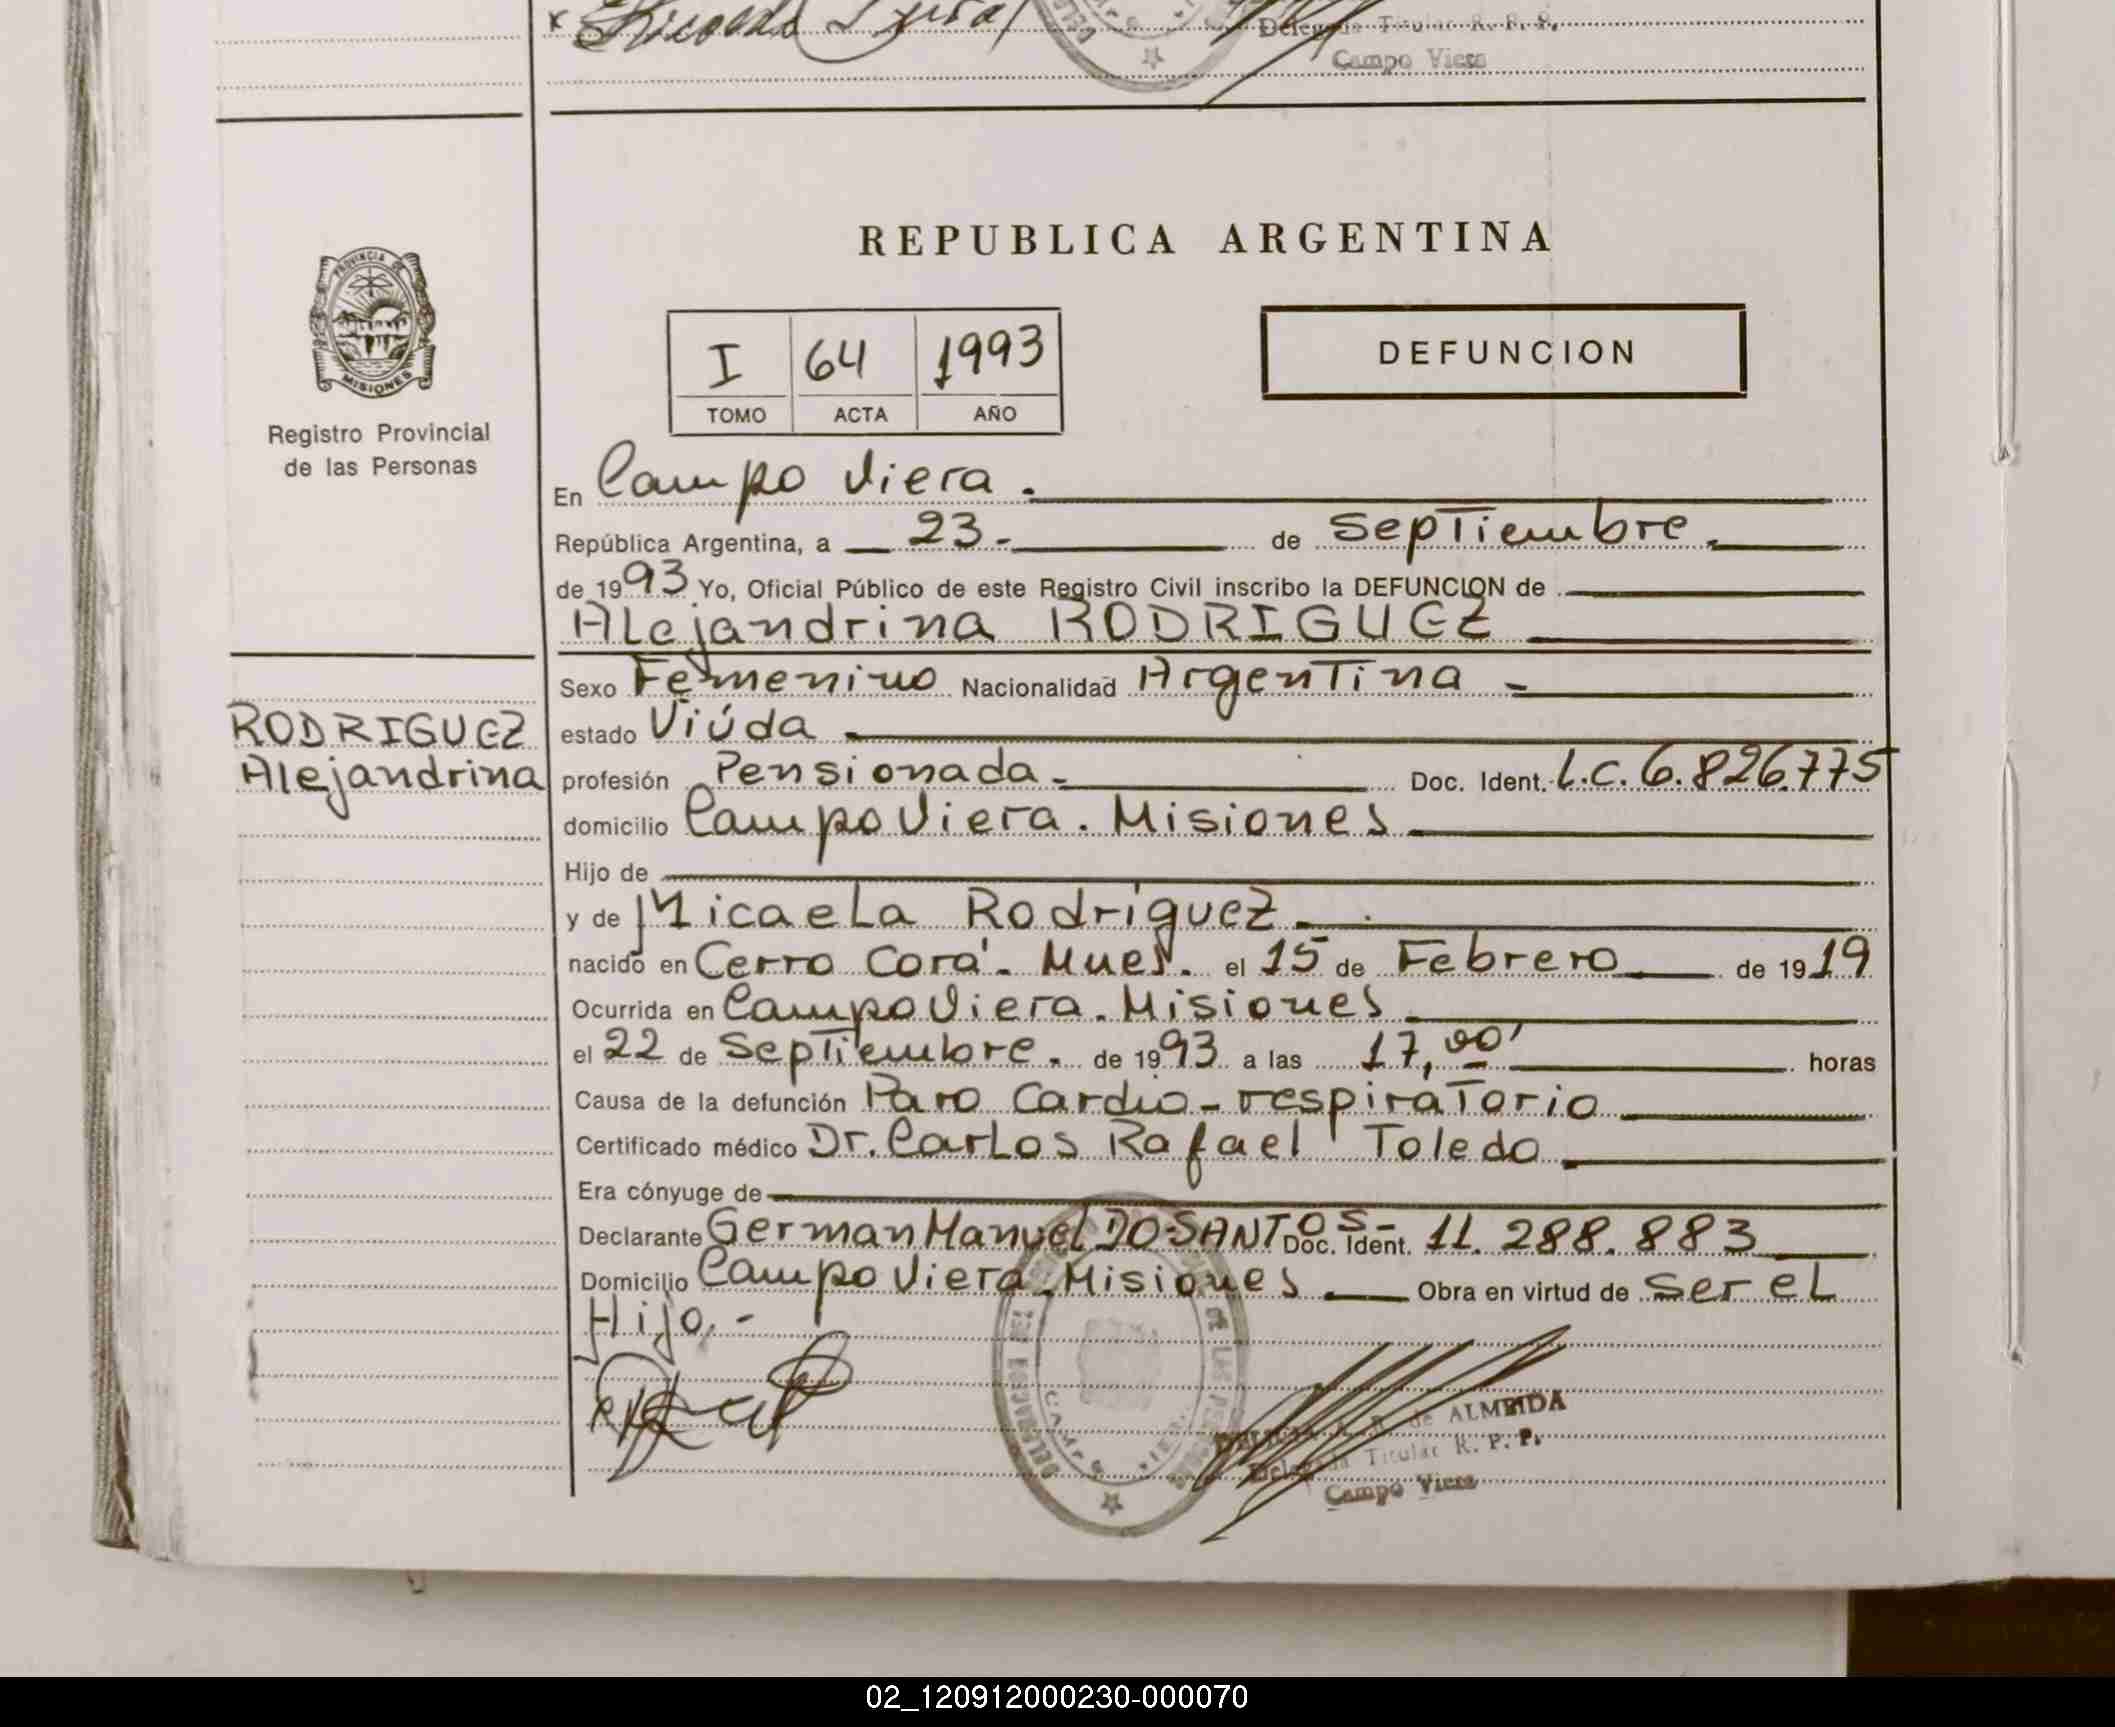 Delegada Titular R. P. P.
Campo Viera
REPUBLICA ARGENTINA
PROVINCIA DE
MISIONES
Registro Provincial
de las Personas
I 64 1993
TOMO ACTA AÑO
DEFUNCION
En Campo Viera.
República Argentina, a 23- de Septiembre.
de 1993 Yo, Oficial Público de este Registro Civil inscribo la DEFUNCION de
Alejandrina RODRIGUEZ
Sexo Femenino Nacionalidad Argentina -
RODRIGUEZ
Alejandrina
estado Viúda
profesión Pensionada- Doc. Ident. L.C. 6.826.775
domicilio Campo Viera. Misiones
Hijo de
y de Micaela Rodríguez
nacido en Cerro Corá. Mnes. el 15 de Febrero de 1919
Ocurrida en Campo Viera. Misiones
el 22 de Septiembre. de 1993 a las 17,00' horas
Causa de la defunción Paro Cardio-respiratorio
Certificado médico Dr. Carlos Rafael Toledo
Era cónyuge de
Declarante German Manuel DO SANTOS- Doc. Ident. 11.288.883
Domicilio Campo Viera. Misiones Obra en virtud de ser el
Hijo.-
de ALMEIDA
Delegada Titular R. P. P.
Campo Viera
02_120912000230-000070